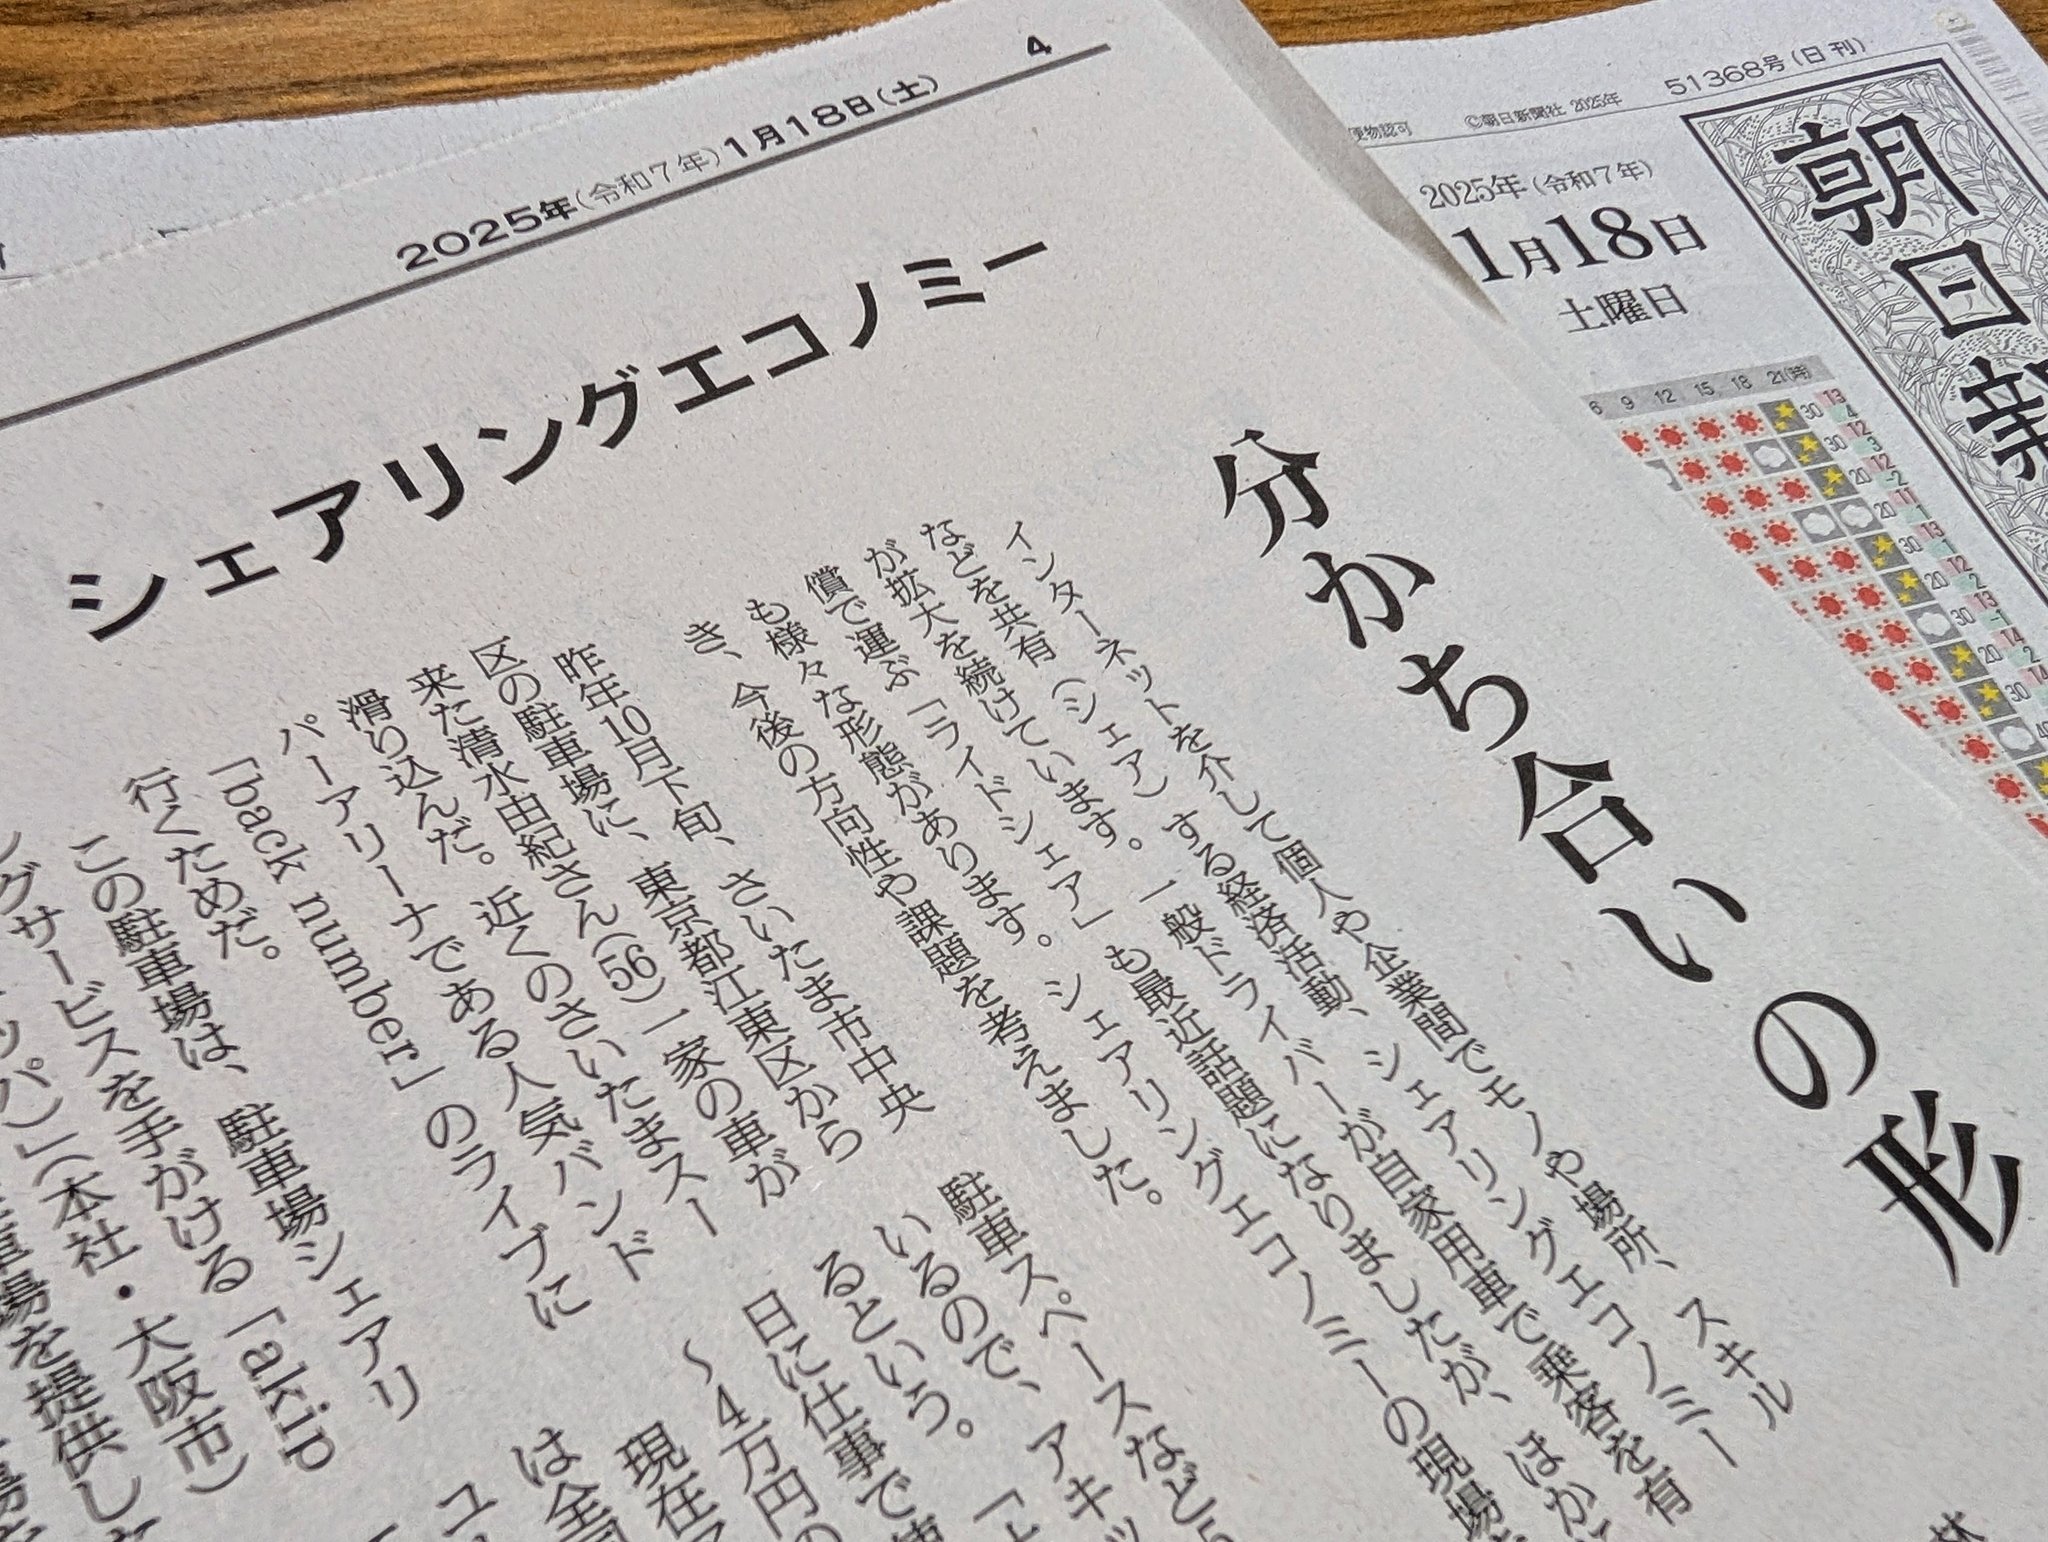 4
2025年(令和7年)1月18日(土)
シェアリングエコノミー
分かち合いの形
インターネットを介して個人や企業間でモノや場所、スキル
などを共有(シェア)する経済活動、シェアリングエコノミー
が拡大を続けています。一般ドライバーが自家用車で乗客を有
償で運ぶ「ライドシェア」も最近話題になりましたが、ほか
も様々な形態があります。シェアリングエコノミーの現場
き、今後の方向性や課題を考えました。
昨年10月下旬、さいたま市中央
区の駐車場に、東京都江東区から
来た清水由紀さん(56)一家の車が
滑り込んだ。近くのさいたまスー
パーアリーナである人気バンド
「back number」のライブに
行くためだ。
この駐車場は、駐車場シェアリ
ングサービスを手がける「akip
(本社・大阪市)
場を提供した
駐車スペースなど
いるので、アキッ
るという。
日に仕事で
〜4万円の
現在
は全
ユ
51368号(日刊)
©朝日新聞社 2025年
便物認可
2025年(令和7年)
1月18日
土曜日
朝日新
6 9 12 15 18 21(時)